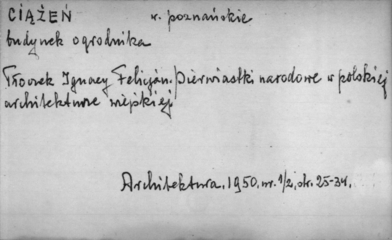 CIĄŻEŃ w. poznańskie
budynek ogrodnika
Tłoczek Ignacy Felicjan. Pierwiastki narodowe w polskiej
architekturze wiejskiej
Architektura, 1950, nr. 1/2, str. 25-34.